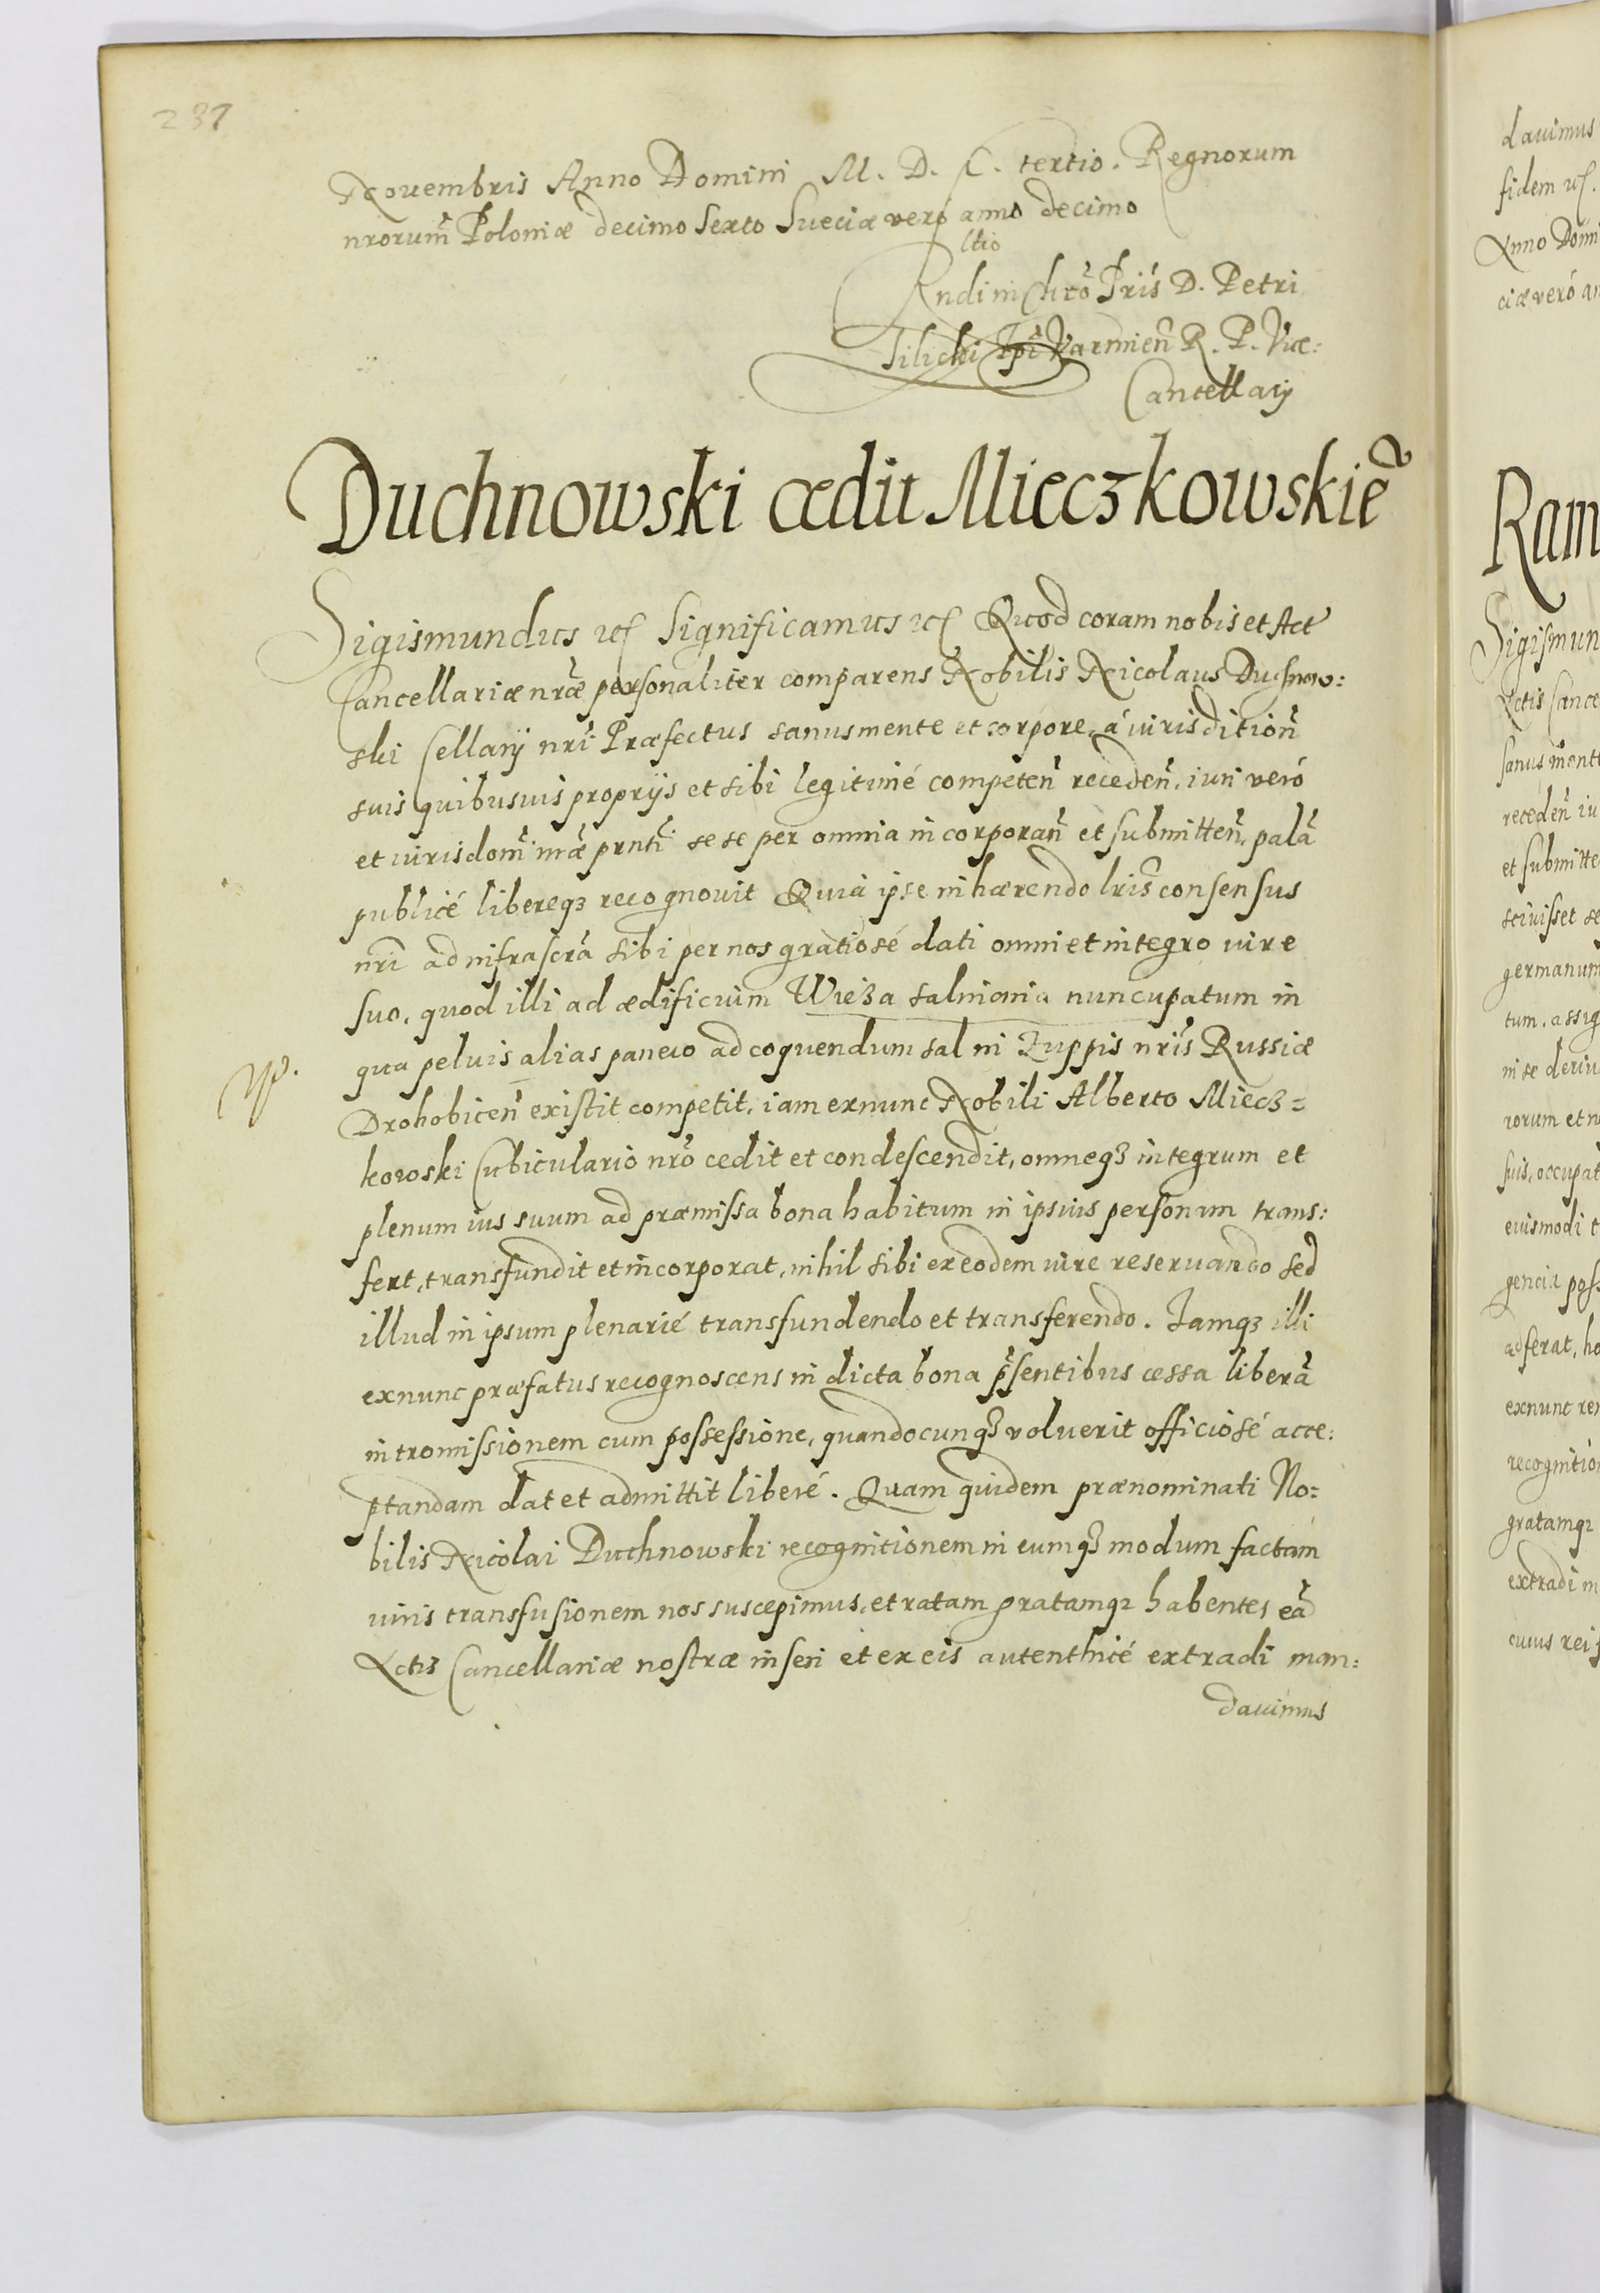 237
Nouembris Anno Domini M. D. C. tertio. Regnorum
nrorum̃ Poloniæ decimo Sexto Sueciæ verò anno decimo
Rndi in Chrõ Pris D. Petri
Tilicki Epĩ Varmień R. P. Vice:
Cancellarij
Duchnowski cedit Mieczkowskiẽ
Sigismundus etc Significamus etc Quod coram nobis et Act
Cancellariæ nræ̃ personaliter comparens Nobilis Nicolaus Duchnow:
ski Cellarij nrĩ Præfectus sanus mente et corpore, à iurisdition̄
suis quibusuis proprijs et sibi legitimé competen̄ receden̄, iuri verò
et iurisdom̃ præ prntĩ se se per omnia incorporan̄ et submitten̄, palã
publicé libereqз recognouit Quia ipse inhærendo lris̃ consensus
nrĩ ad infrascrã sibi per nos gratiosé dati omni et integro iure
suo, quod illi ad ædificium Wieża salniania nuncupatum in
qua peluis alias panew ad coquendum sal in Zuppis nrĩs Russiæ
Drohobicen̄ existit competit, iam exnunc Nobili Alberto Miecz=
kowski Cubiculario nrõ cedit et condescendit, omneqз integrum et
plenum ius suum ad præmissa bona habitum in ipsius personam trans:
fert, transfundit et incorporat, nihil sibi ex eodem iure reseruando sed
illud in ipsum plenarié transfundendo et transferendo. Iamqз illi
exnunc præfatus recognoscens in dicta bona p̃sentibus cessa liberã
intromissionem cum possessione, quandocunqз voluerit officiosé acce:
ptandam dat et admittit liberé. Quam quidem prænominati No=
bilis Nicolai Duchnowski recognitionem in eumqз modum factam
iuris transfusionem nos suscepimus, et ratam gratamqз habentes eã
Actis Cancellariæ nostræ inseri et ex eis autenthicé extradi man:
dauimus
dauimus
fidem etc.
Anno Domi
ciæ verò an
Ram
Sigismun
Actis Cance
sanus mente
receden̄ iu
et submitte
sciuisset se
germanum
tum, assig
in se deriu
rorum et n
suis, occupat
eiusmodi t
gencia poss
adferat, ho
exnunc re
recognitio
gratamqз
extradi m
cuius rei